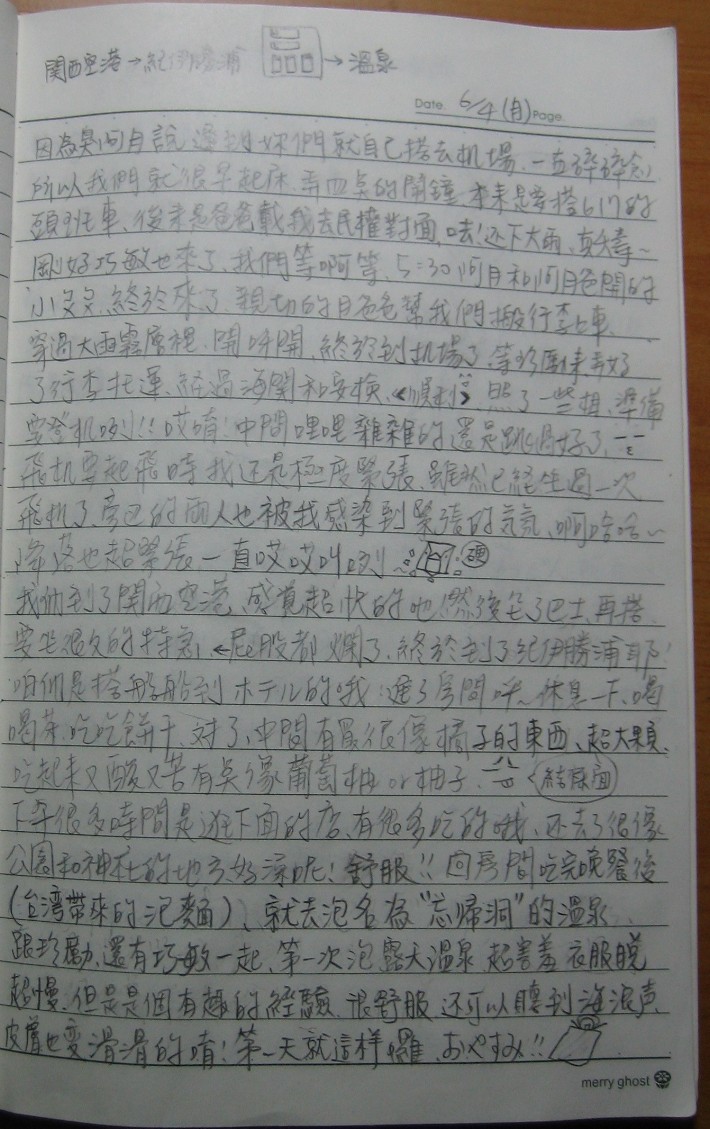 関西空港→紀伊勝浦 →溫泉
Date. 6/4(月) Page.
因為臭阿月說遲到妳們就自己搭去机場.一直碎碎念.
所以我們就很早起床.弄的鬧鐘.本來是要搭617的
頭班車、後來是爸爸載我去民權對面、唉!还下大雨、真~
剛好巧敏也來了、我們等啊等.5:30阿月和阿月爸開的
小終於來了.親切的月爸爸幫我們搬行李上車、
穿過大雨雲層裡、開呀開、終於到机場了、等弄好
了行李托運、經過海關和安檢、順利照了一些相、準備
要登机咧!!哎唷!中間哩哩雜雜的還是跳過好了、
飛机要起飛時我还是極度緊張、雖然已經坐過一次
飛机了.旁边的兩人也被我感染到緊張的氣氛、啊哈哈~
降落也超緊張.一直哎哎叫咧
我们到了関西空港、感覚超快的吧!然後坐了巴士、再搭
要坐很久的特急 ←屁股都爛了、終於到了紀伊勝浦耶!
咱们是搭船船到ホテル的哦!進了房間呼~休息一下、喝
喝茶.吃吃餅干.对了、中間有買很像橘子的東西、超大顆、
吃起來又酸又苦有臭像葡萄柚or柚子. <結屎面
下午很多時間是逛下面的店、有很多吃的哦、还去了很像
公園和神社的地方、好涼呢!舒服!!回房間吃完晚餐後
(台湾帶來的泡麵)、就去泡名為"忘帰洞"的溫泉、
跟珍勵、還有巧敏一起、第一次泡露天溫泉.超害羞衣服脫
超慢、但是是個有趣的経驗、很舒服、还可以聽到海浪声、
皮膚也变滑滑的唷!第一天就這样囉、おやすみ!!
merry ghost